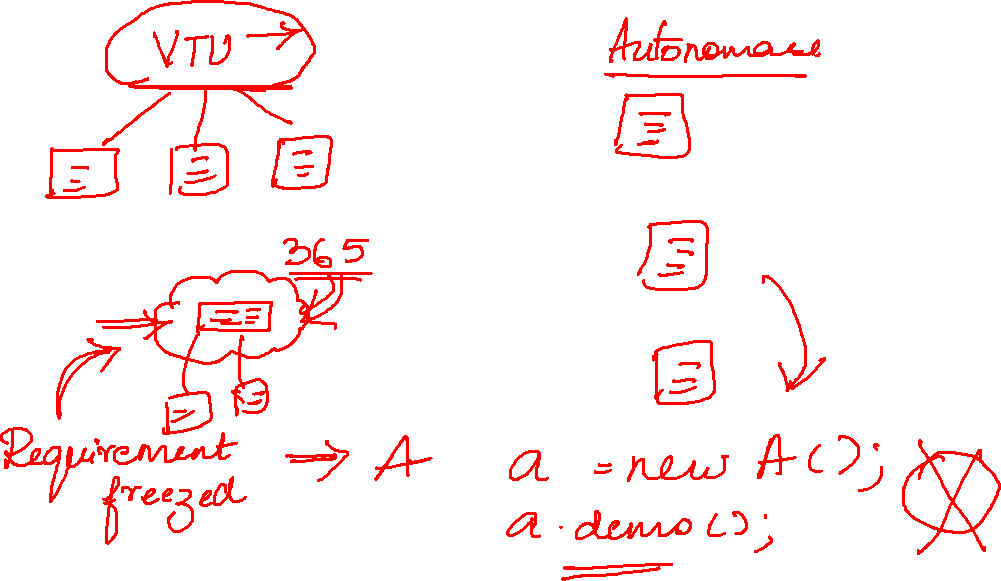 VTU
Autonomace
365
Requirement
freezed
A
a = new A();
a.demo();